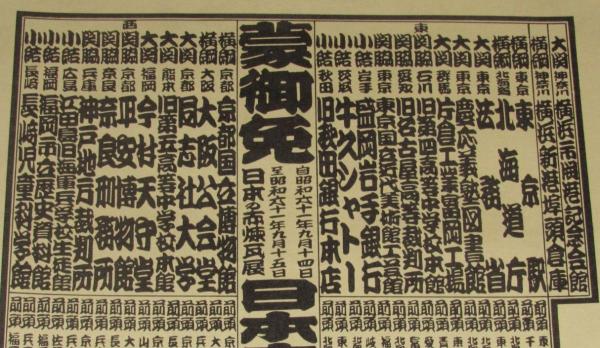 東
大関 神奈川 横浜市開港記念会館
横綱 神奈川 横浜新港埠頭倉庫
横綱 東京 東京駅
横綱 北海道 北海道庁
大関 東京 法務省
大関 東京 慶応義塾図書館
大関 群馬 片倉工業富岡工場
関脇 石川 旧第四高等中学校本館
関脇 愛知 旧名古屋高等裁判所
関脇 東京 東京国立近代美術館工芸館
小結 岩手 盛岡岩手銀行
小結 茨城 牛久シャトー
小結 秋田 旧秋田銀行本店
蒙御免
自昭和六十一年九月十四日
至昭和六十一年九月十五日
日本の赤煉瓦展
日本
西
横綱 京都 京都国立博物館
横綱 大阪 大阪公会堂
大関 京都 同志社大学
大関 熊本 旧第五高等中学校本館
大関 福岡 今村天守堂
関脇 京都 平安博物館
関脇 奈良 奈良刑務所
関脇 兵庫 神戸地方裁判所
小結 広島 江田島旧海軍兵学校生徒館
小結 福岡 福岡市立歴史資料館
小結 長崎 長崎児童科学館